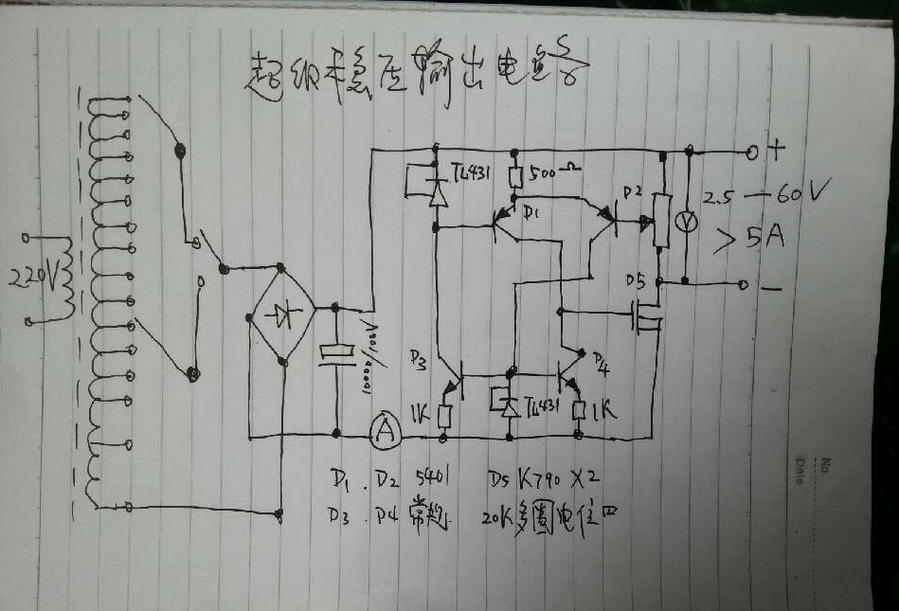 超级稳压输出电
220V
TL431
500Ω
D1
D2
2.5 — 60V
> 5A
+
−
D5
10000/100V
D3
D4
1K
TL431
1K
A
V
D1 . D2 5401 D5 K790 X2
D3 . D4 常规. 20K多圈电位
No.
Date